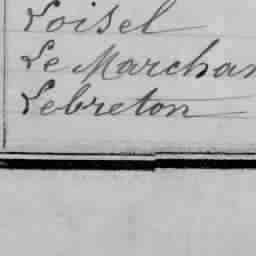 Loisel
Le Marchan
Lebreton